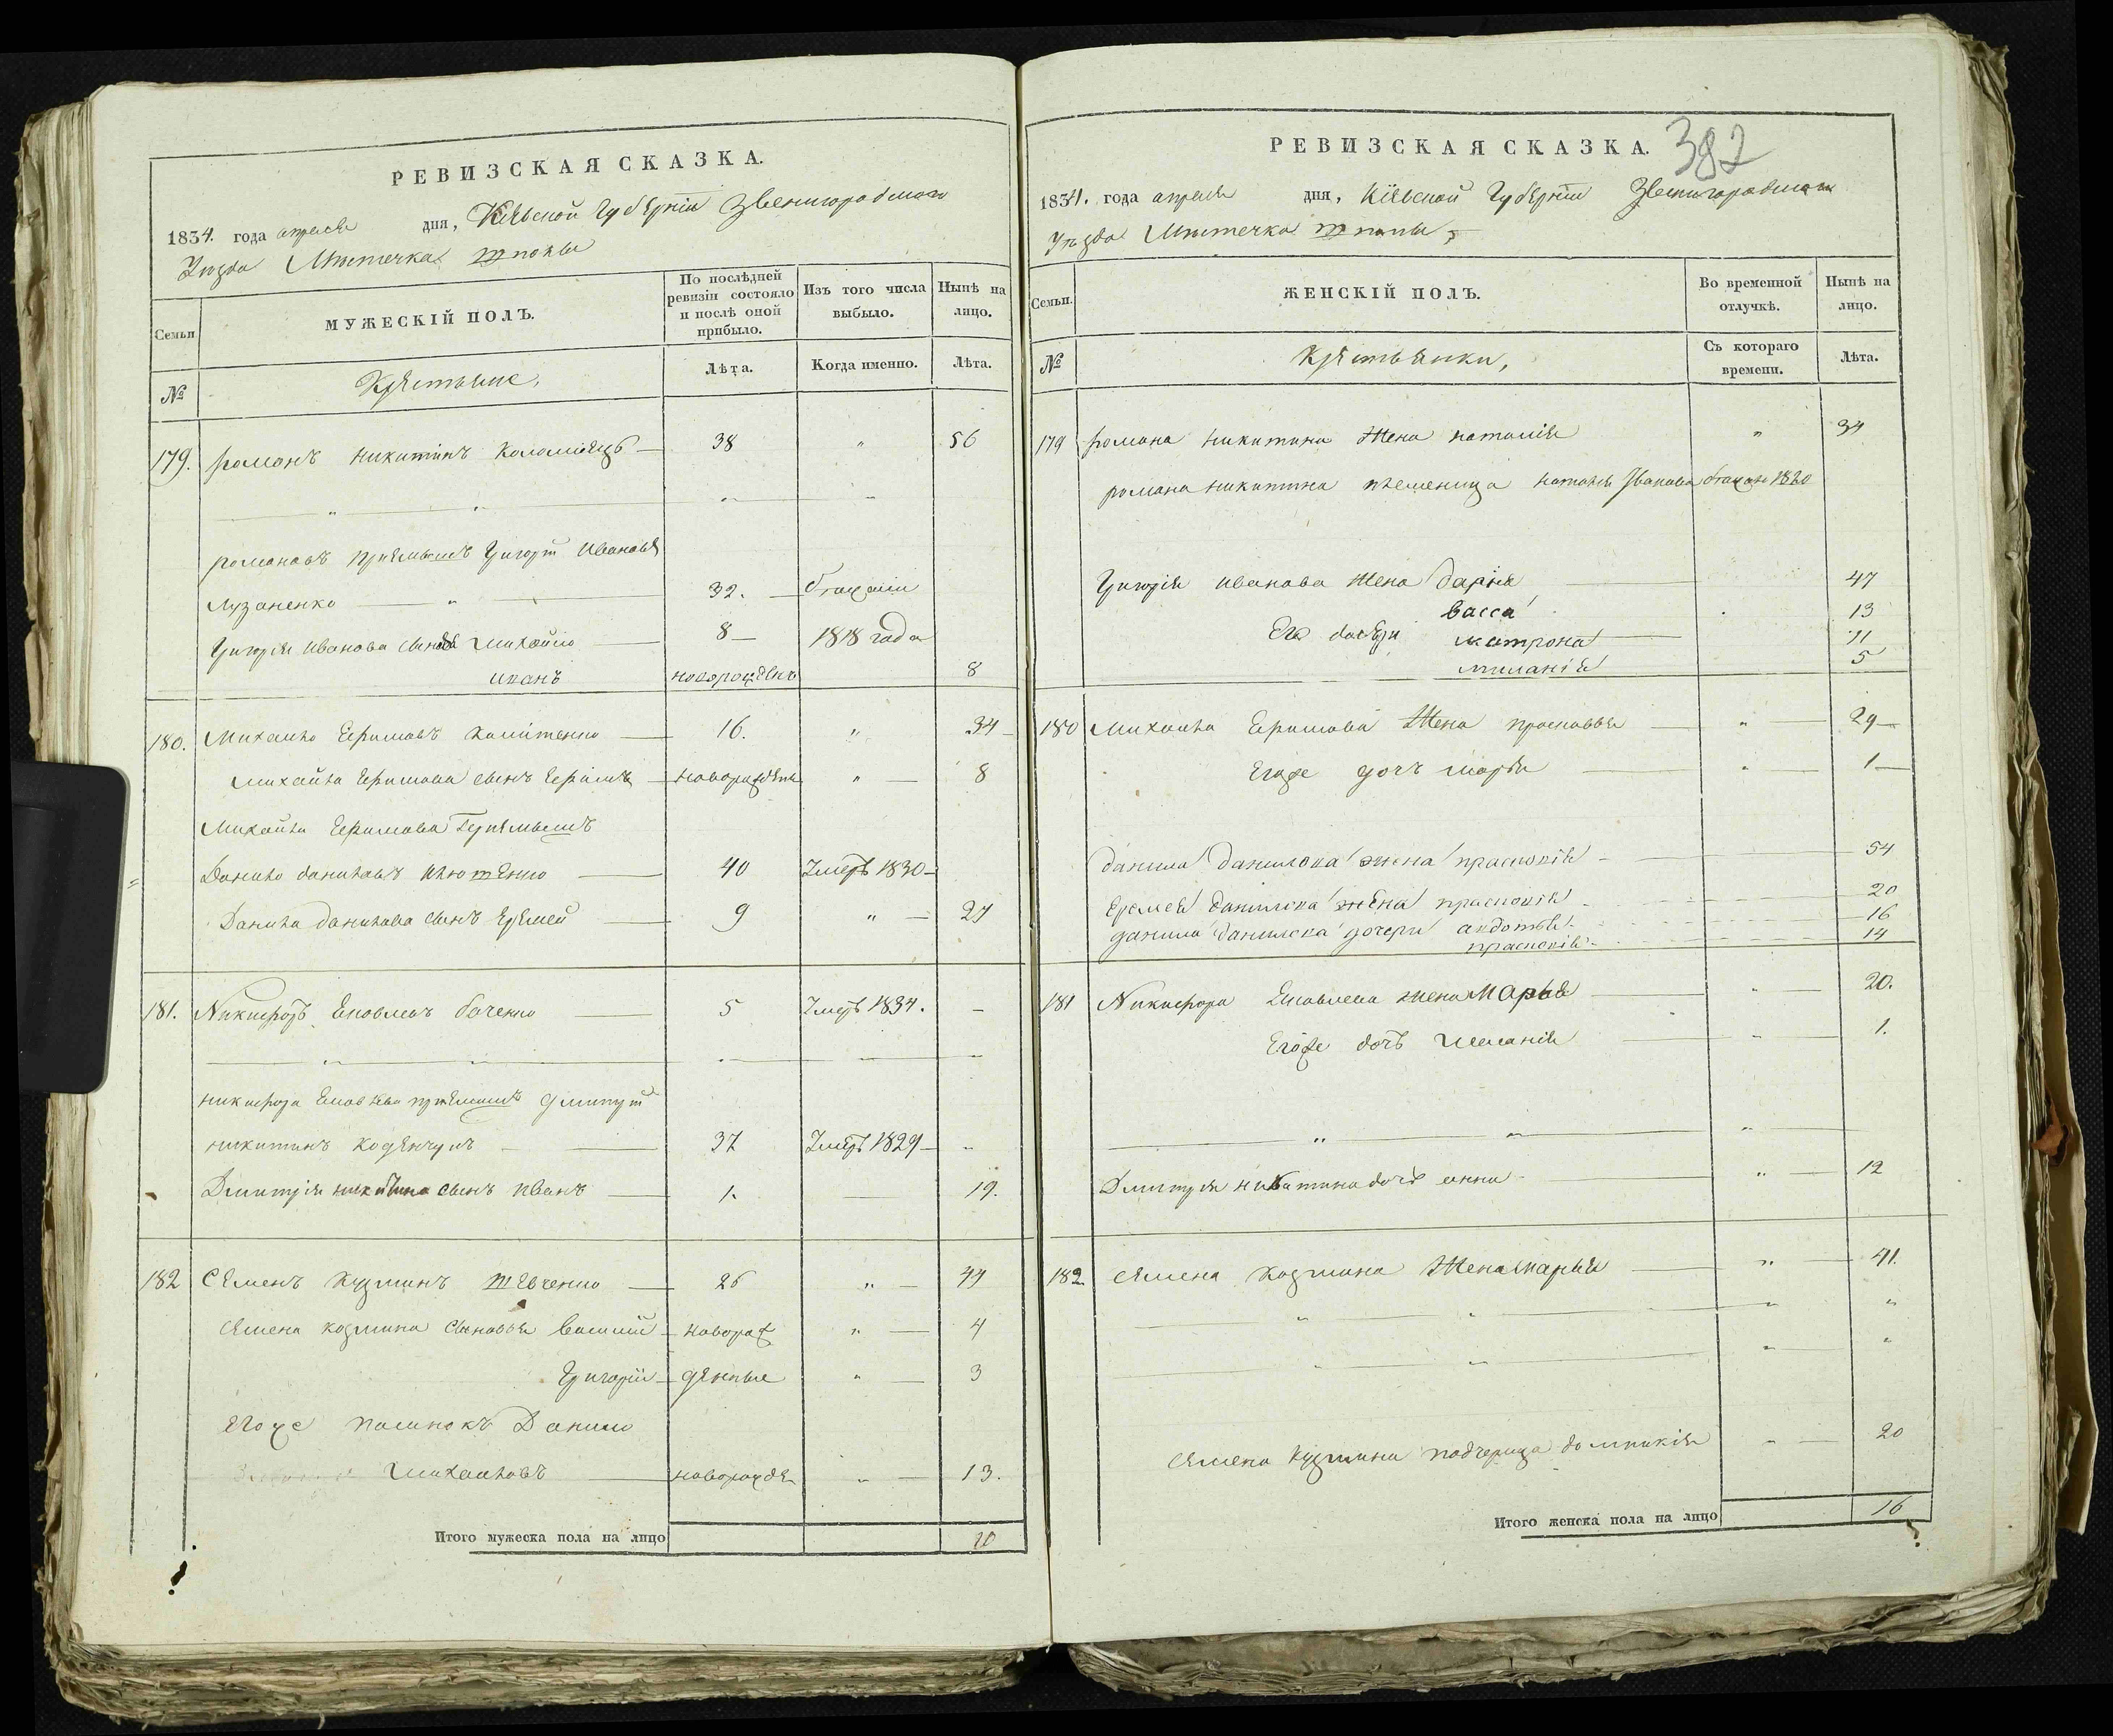 РЕВИЗСКАЯ СКАЗКА.
1834. года апреля дня, Кіевской Губерніи Звенигородского
Уезда Мѣстечка Шполы
Семьи
МУЖЕСКІЙ ПОЛЪ.
По послѣдней ревизіи состояло и послѣ оной прибыло.
Изъ того числа выбыло.
Нынѣ на лицо.
№
Крестьяне,
Лѣта.
Когда именно.
Лѣта.
179. Романъ Никитинъ Коломіецъ 38 " 56
романовъ Приемышъ Григорій Ивановъ
Лузаненко 32.
Григорія Иванова сынъ Михайло 8 1818 года
Иванъ новорожденъ 8
180. Михайло Ефимовъ 16. " 34
Михайла Ефимова сынъ Ефимъ новорожденъ " 8
Михайла Ефимова Приемышъ
Данило Даниловъ 40 Умеръ 1830
Данила Данилова сынъ Еремей 9 " 27
181. Никифоръ Яковлевъ Боченко 5 Умеръ 1834. -
никифора Яковлева приемышъ Дмитрій
никитинъ 37 Умеръ 1829
Дмитрія никитина сынъ Иванъ 1. 19.
182 Семенъ Кузминъ Шевченко 26 " 44
Семена Козмина сыновья Василий новорож " 4
Григорій денные " 3
Егоже Данило
Михайловъ новорожде " 13.
Итого мужеска пола на лицо 10
РЕВИЗСКАЯ СКАЗКА. 382
1834. года апреля дня, Кіевской Губерніи Звенигородского
Уѣзда Мѣстечка Шполы
Семьи.
ЖЕНСКІЙ ПОЛЪ.
Во временной отлучкѣ.
Нынѣ на лицо.
№
Крестьянки,
Съ котораго времени.
Лѣта.
179 Романа Никитина Жена наталія " 34
романа никитина племеница наталя Иванова 1820
Григорія Иванова жена Дарія 47
Васса 13
Его дочери матрона 11
миланія 5
180 Михайла Ефимова Жена прасковья " 29
Егоже дочъ марья " 1
Данила Данилова жена прасковія 54
Еремея Данилова жена прасковія 20
данила Данилова дочери авдотья 16
прасковія 14
181 Никифора Яковлева жена Марья " 20.
Егоже дочъ Меланія " 1.
Дмитрія никитина дочъ анна " 12
182 Семена Козмина Жена марья " 41.
Семена Кузмина падчерица домникія " 20
Итого женска пола на лицо 16